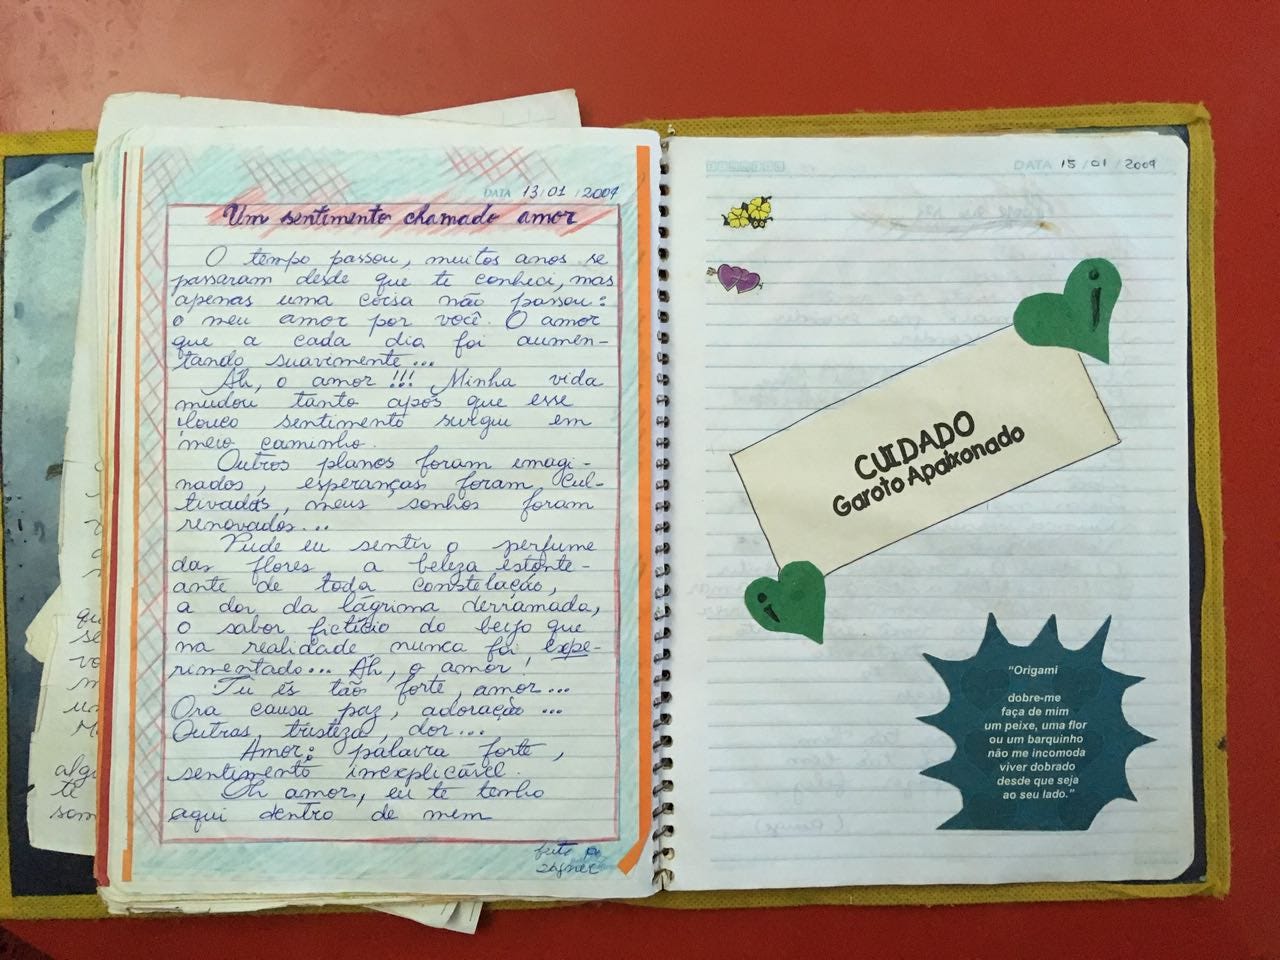 DATA 13/01/2009
Um sentimento chamado amor
O tempo passou, muitos anos se
passaram desde que te conheci, mas
apenas uma coisa não passou:
o meu amor por você. O amor
que a cada dia foi aumen-
tando suavimente...
Ah, o amor!!! Minha vida
mudou tanto após que esse
louco sentimento surgiu em
meio caminho.
Outros planos foram imagi-
nados, esperanças foram cul-
tivadas, meus sonhos foram
renovados...
Pude eu sentir o perfume
das flores a beleza estonte-
ante de toda constelação,
a dor da lágrima derramada,
o sabor fictício do beijo que
na realidade nunca foi expe-
rimentado... Ah, o amor!
Tu és tão forte, amor...
Ora causa paz, adoração...
Outras tristeza, dor...
Amor: palavra forte,
sentimento inexplicável.
Oh amor, eu te tenho
aqui dentro de mem
feito
DATA 15/01/2009
CUIDADO
Garoto Apaixonado
"Origami
dobre-me
faça de mim
um peixe, uma flor
ou um barquinho
não me incomoda
viver dobrado
desde que seja
ao seu lado."